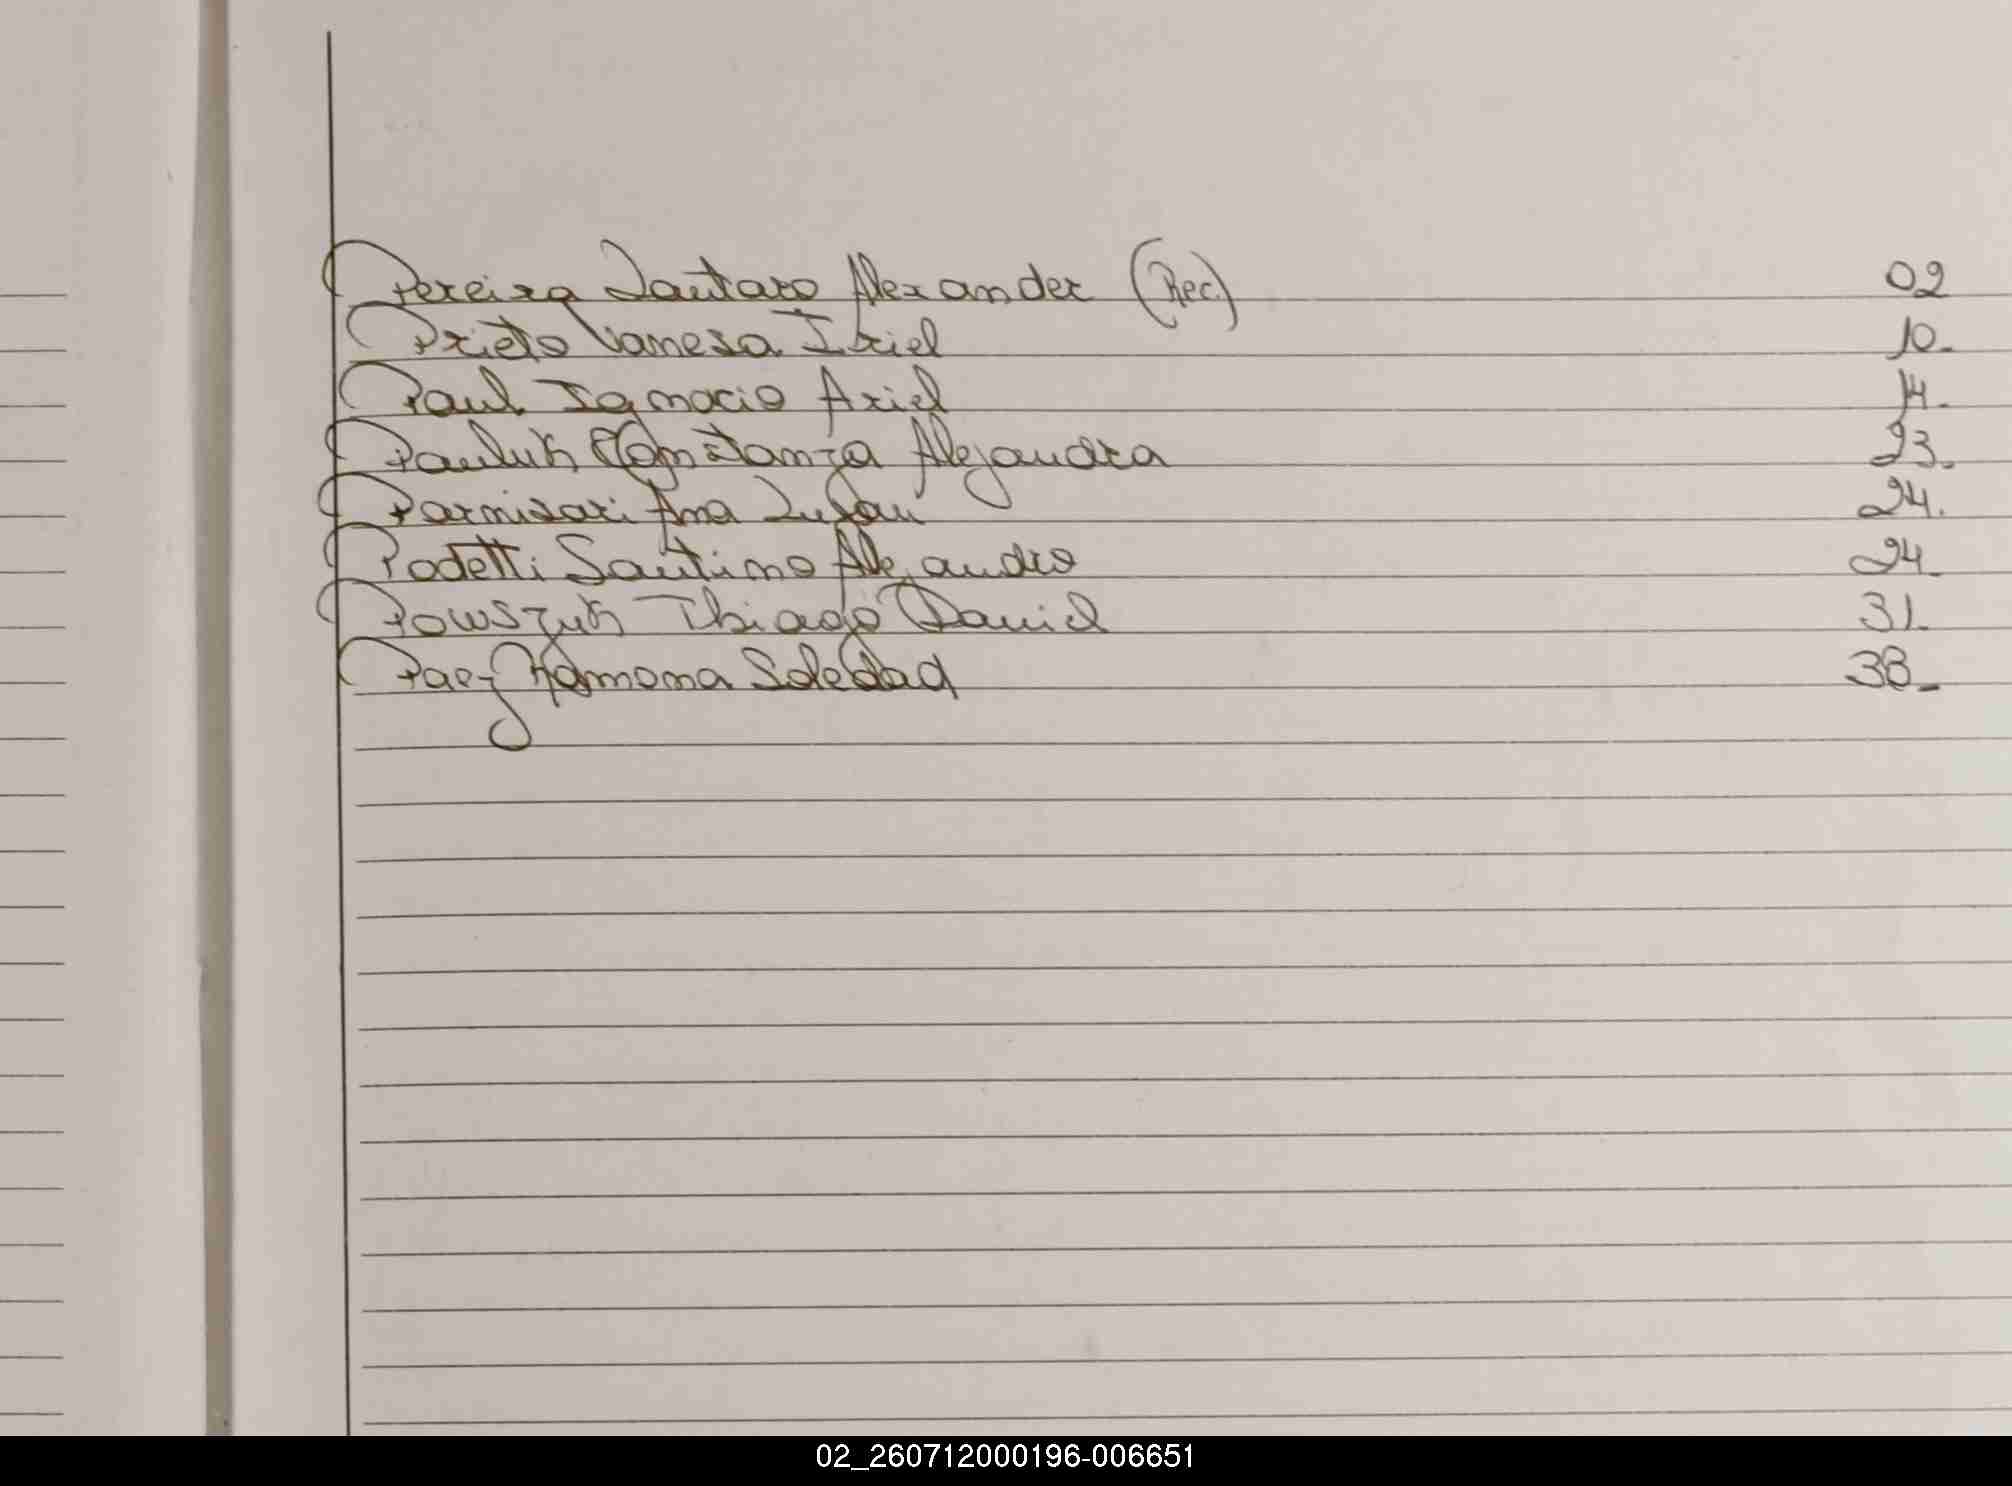 Pereira Lautaro Alexander (Rec.) 02
Prieto Vanesa Itiel 10.
Paul Ignacio Axiel 14.
Pauluk Constanza Alejandra 23.
Parnisari Ana Luján 24.
Podetti Santino Alejandro 24.
Powszuk Thiago Daniel 31.
Paez Ramona Soledad 38.
02_260712000196-006651